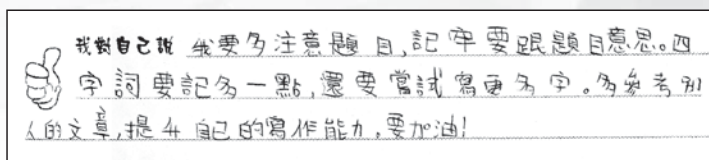 我對自己說 我要多注意題目,記牢要跟題目意思。四
字詞要記多一點,還要嘗試寫更多字。多參考別
人的文章,提升自己的寫作能力,要加油!